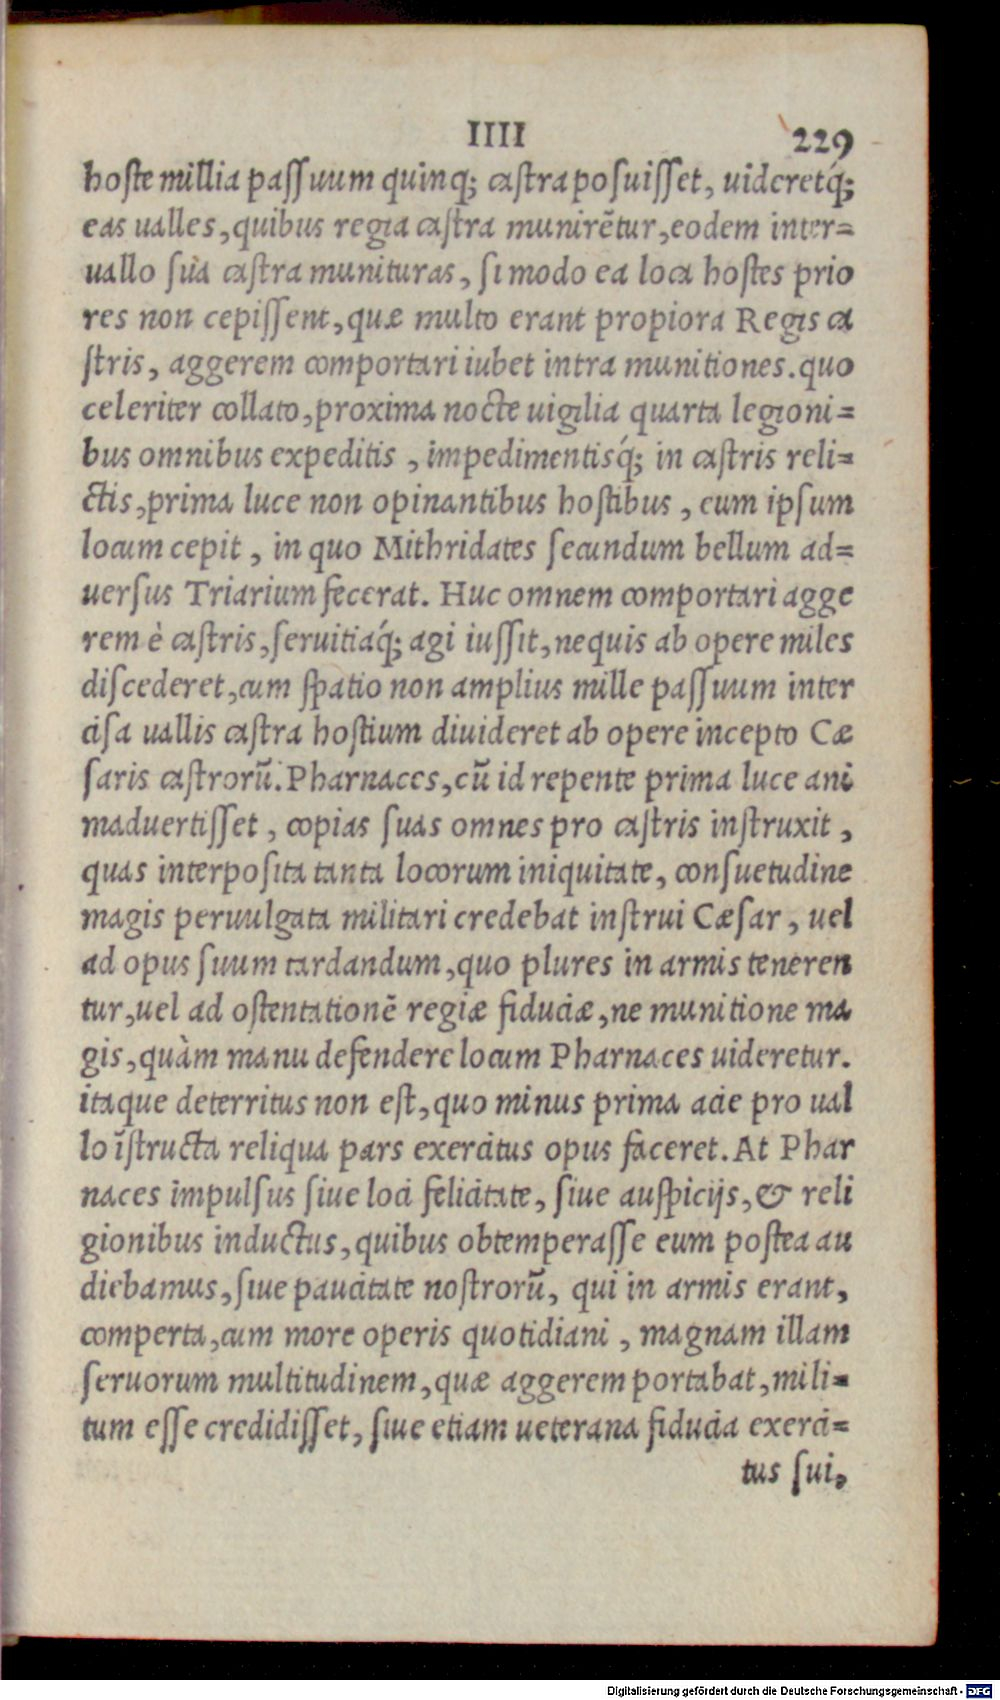 IIII 229
hoste millia passuum quinq́; castra posuisset, uideretq́;
eas ualles, quibus regia castra munirētur, eodem inter=
uallo sua castra munituras, si modo ea loca hostes prio
res non cepissent, quæ multo erant propiora Regis ca
stris, aggerem comportari iubet intra munitiones. quo
celeriter collato, proxima nocte uigilia quarta legioni=
bus omnibus expeditis, impedimentisq́; in castris reli=
ctis, prima luce non opinantibus hostibus, eum ipsum
locum cepit, in quo Mithridates secundum bellum ad=
uersus Triarium fecerat. Huc omnem comportari agge
rem è castris, seruitiaq́; agi iussit, nequis ab opere miles
discederet, cum spatio non amplius mille passuum inter
cisa uallis castra hostium diuideret ab opere incepto Cæ
saris castrorū. Pharnaces, cū id repente prima luce ani
maduertisset, copias suas omnes pro castris instruxit,
quas interposita tanta locorum iniquitate, consuetudine
magis peruulgata militari credebat instrui Cæsar, uel
ad opus suum tardandum, quo plures in armis teneren
tur, uel ad ostentationē regiæ fiduciæ, ne munitione ma
gis, quàm manu defendere locum Pharnaces uideretur.
itaque deterritus non est, quo minus prima acie pro ual
lo īstructa reliqua pars exercitus opus faceret. At Phar
naces impulsus siue loci felicitate, siue auspicijs, & reli
gionibus inductus, quibus obtemperasse eum postea au
diebamus, siue paucitate nostrorū, qui in armis erant,
comperta, cum more operis quotidiani, magnam illam
seruorum multitudinem, quæ aggerem portabat, mili=
tum esse credidisset, siue etiam ueterana fiducia exerci=
tus sui,
Digitalisierung gefördert durch die Deutsche Forschungsgemeinschaft - DFG